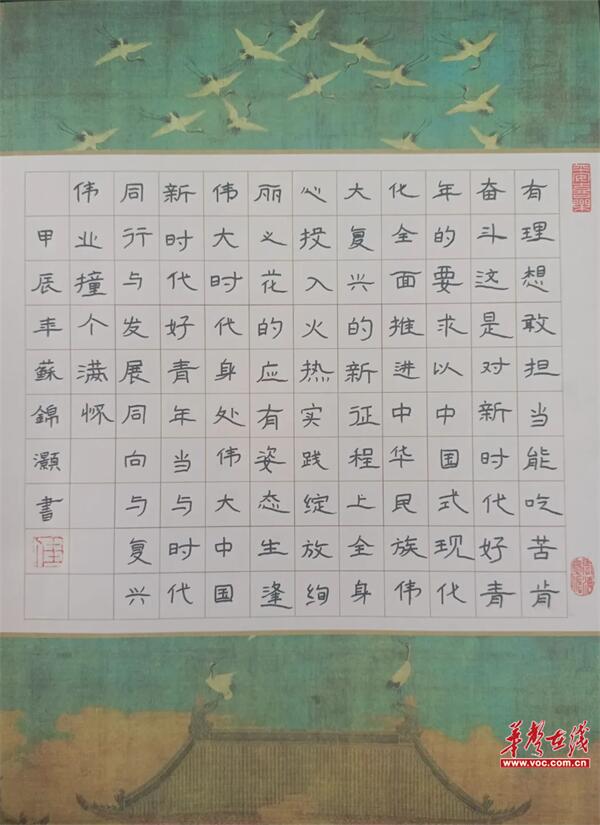 有理想敢担当能吃苦肯
奋斗这是对新时代好青
年的要求以中国式现代
化全面推进中华民族伟
大复兴的新征程上全身
心投入火热实践绽放绚
丽义花的应有姿态生逢
伟大时代身处伟大中国
新时代好青年当与时代
同行与发展同向与复兴
伟业撞个满怀
甲辰年蘇錦灝書
華聲在线
www.voc.com.cn